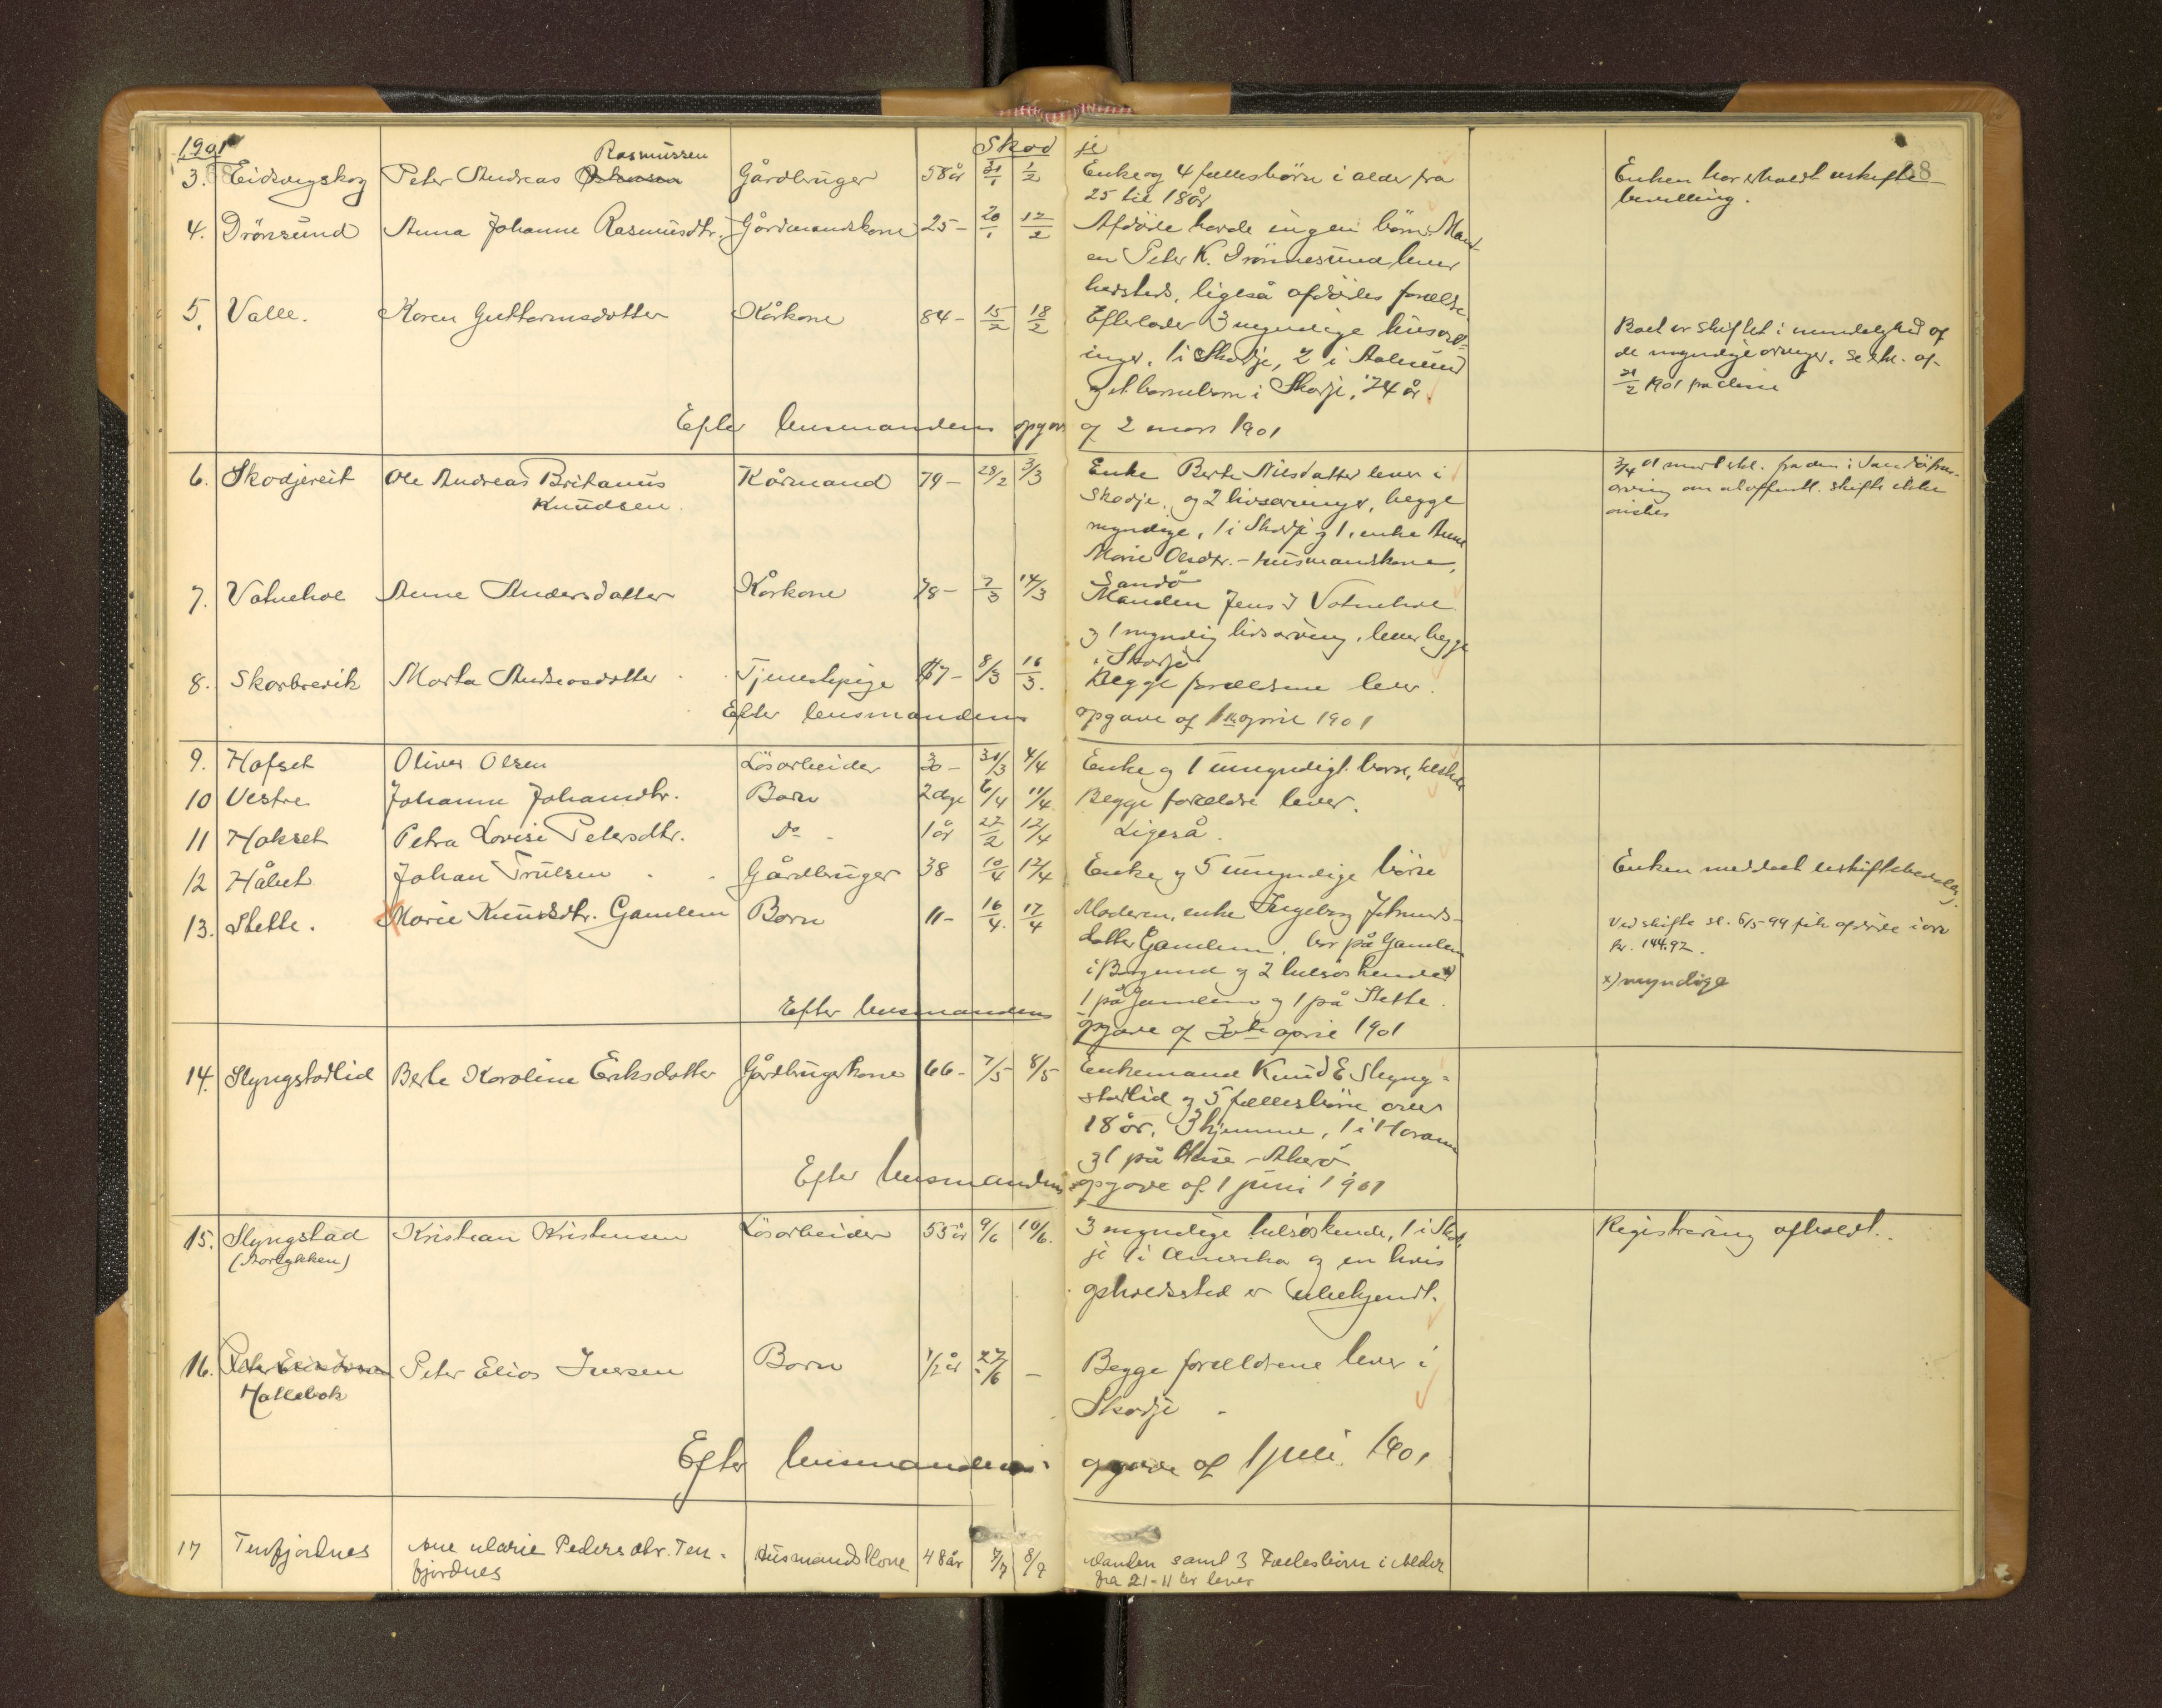 1901
Skodje
38
3. Eidsvigskog Peter Andreas Rasmussen Gårdbruger 58 år 31/1 1/2 Enke og 4 fællesbørn i alder fra Enken har erholdt uskifte-
25 til 18 år bevilling.
4. Drönsund Anna Johanne Rasmusdtr. Gårdmandskone 25 - 20/1 12/2 Afdöde havde ingen börn. Mand-
en Peter K. Drönnesund lever
hersteds, ligeså afdödes foreldre
5. Valle. Karen Guttormsdotter Kårkone 84 - 15/2 18/2 Efterlader 3 myndige livsarv-
inger, 1 i Skodje, 2 i Aalesund
og et barnebarn i Skodje, 24 år.
Boet er skiftet i mindelighed af
de myndige arvinger. Se skr. af
21/2 1901 fra disse
Efter lensmandens opgave af 2 mars 1901
6. Skodjereit Ole Andreas Britanus Kårmand 79 - 28/2 3/3 Enke Berte Nilsdatter lever i
Knudsen
Skodje, og 2 livsarvinger, begge
myndige, 1 i Skodje og 1, enke Anne
Marie Olsdtr. - husmandskone,
Sandö
3/4 01 modt. skr. fra den i Sandö
arving om at offentl. skifte ikke
önskes
7. Vatnehol Anne Andersdatter Kårkone 78 - 7/3 14/3 Manden Jens J Vatnehol
og 1 myndig livsarving, lever begge
i Skodje
8. Skorbrevik Marta Andreasdotter Tjenestepige 17 - 8/3 16/3. Begge forældrene lever.
Efter lensmandens opgave af 1ste april 1901
9. Hafset Oliver Olsen Lösarbeider 30 - 31/3 4/4 Enke og 1 umyndigt barn,
10 Vestre Johanne Johansdtr. Barn 2 dge 6/4 11/4 Begge forældre lever.
11 Hakset Petra Lovise Petersdtr. Do - 1 år 27/2 12/4 Ligeså.
12 Håhet Johan Trulsen Gårdbruger 38 10/4 12/4 Enke og 5 umyndige börn Enken meddelt uskiftebevilling.
13. Stette. Marie Knudsdtr. Gamlem Barn 11 - 16/4 17/4 Moderen, enke Ingeborg
datter Gamlem, bor på Gamlem
i Borgund og 2 helsöskende x)
1 på Gamlem og 1 på Stette.
Ved skifte sl. 6/5-99 fik afdöde i arv
kr. 144.92.
x) myndige
Efter lensmandens opgave af 30te april 1901
14. Slyngstadlid Berte Karoline Eriksdatter Gårdbrugerkone 66 - 7/5 8/5 Enkemand Knud E Slyng-
stadlid og 5 fællesbörn over
18 år, 3 hjemme, 1 i Haram
og 1 på Akerö
Efter lensmandens opgave af 1 juni 1901
15. Slyngstad Kristian Kristensen Lösarbeider 55 år 9/6 10/6. 3 myndige helsöskende, 1 i Skod- Registrering afholdt.
je 1 i Amerika og en hvis
opholdssted er ubekjendt.
16. Peter Elias Iversen Barn 1/2 år 27/6 - Begge forældrene lever i
Hallebak
Skodje
Efter lensmandens opgave af 1 juli 1901
17 Tenfjordnes Ane Marie Pedersdtr. Ten- Husmandskone 48 år 7/7 8/7 Manden samt 3 Fællesbörn i Alder
fjordnes fra 21-11 år lever